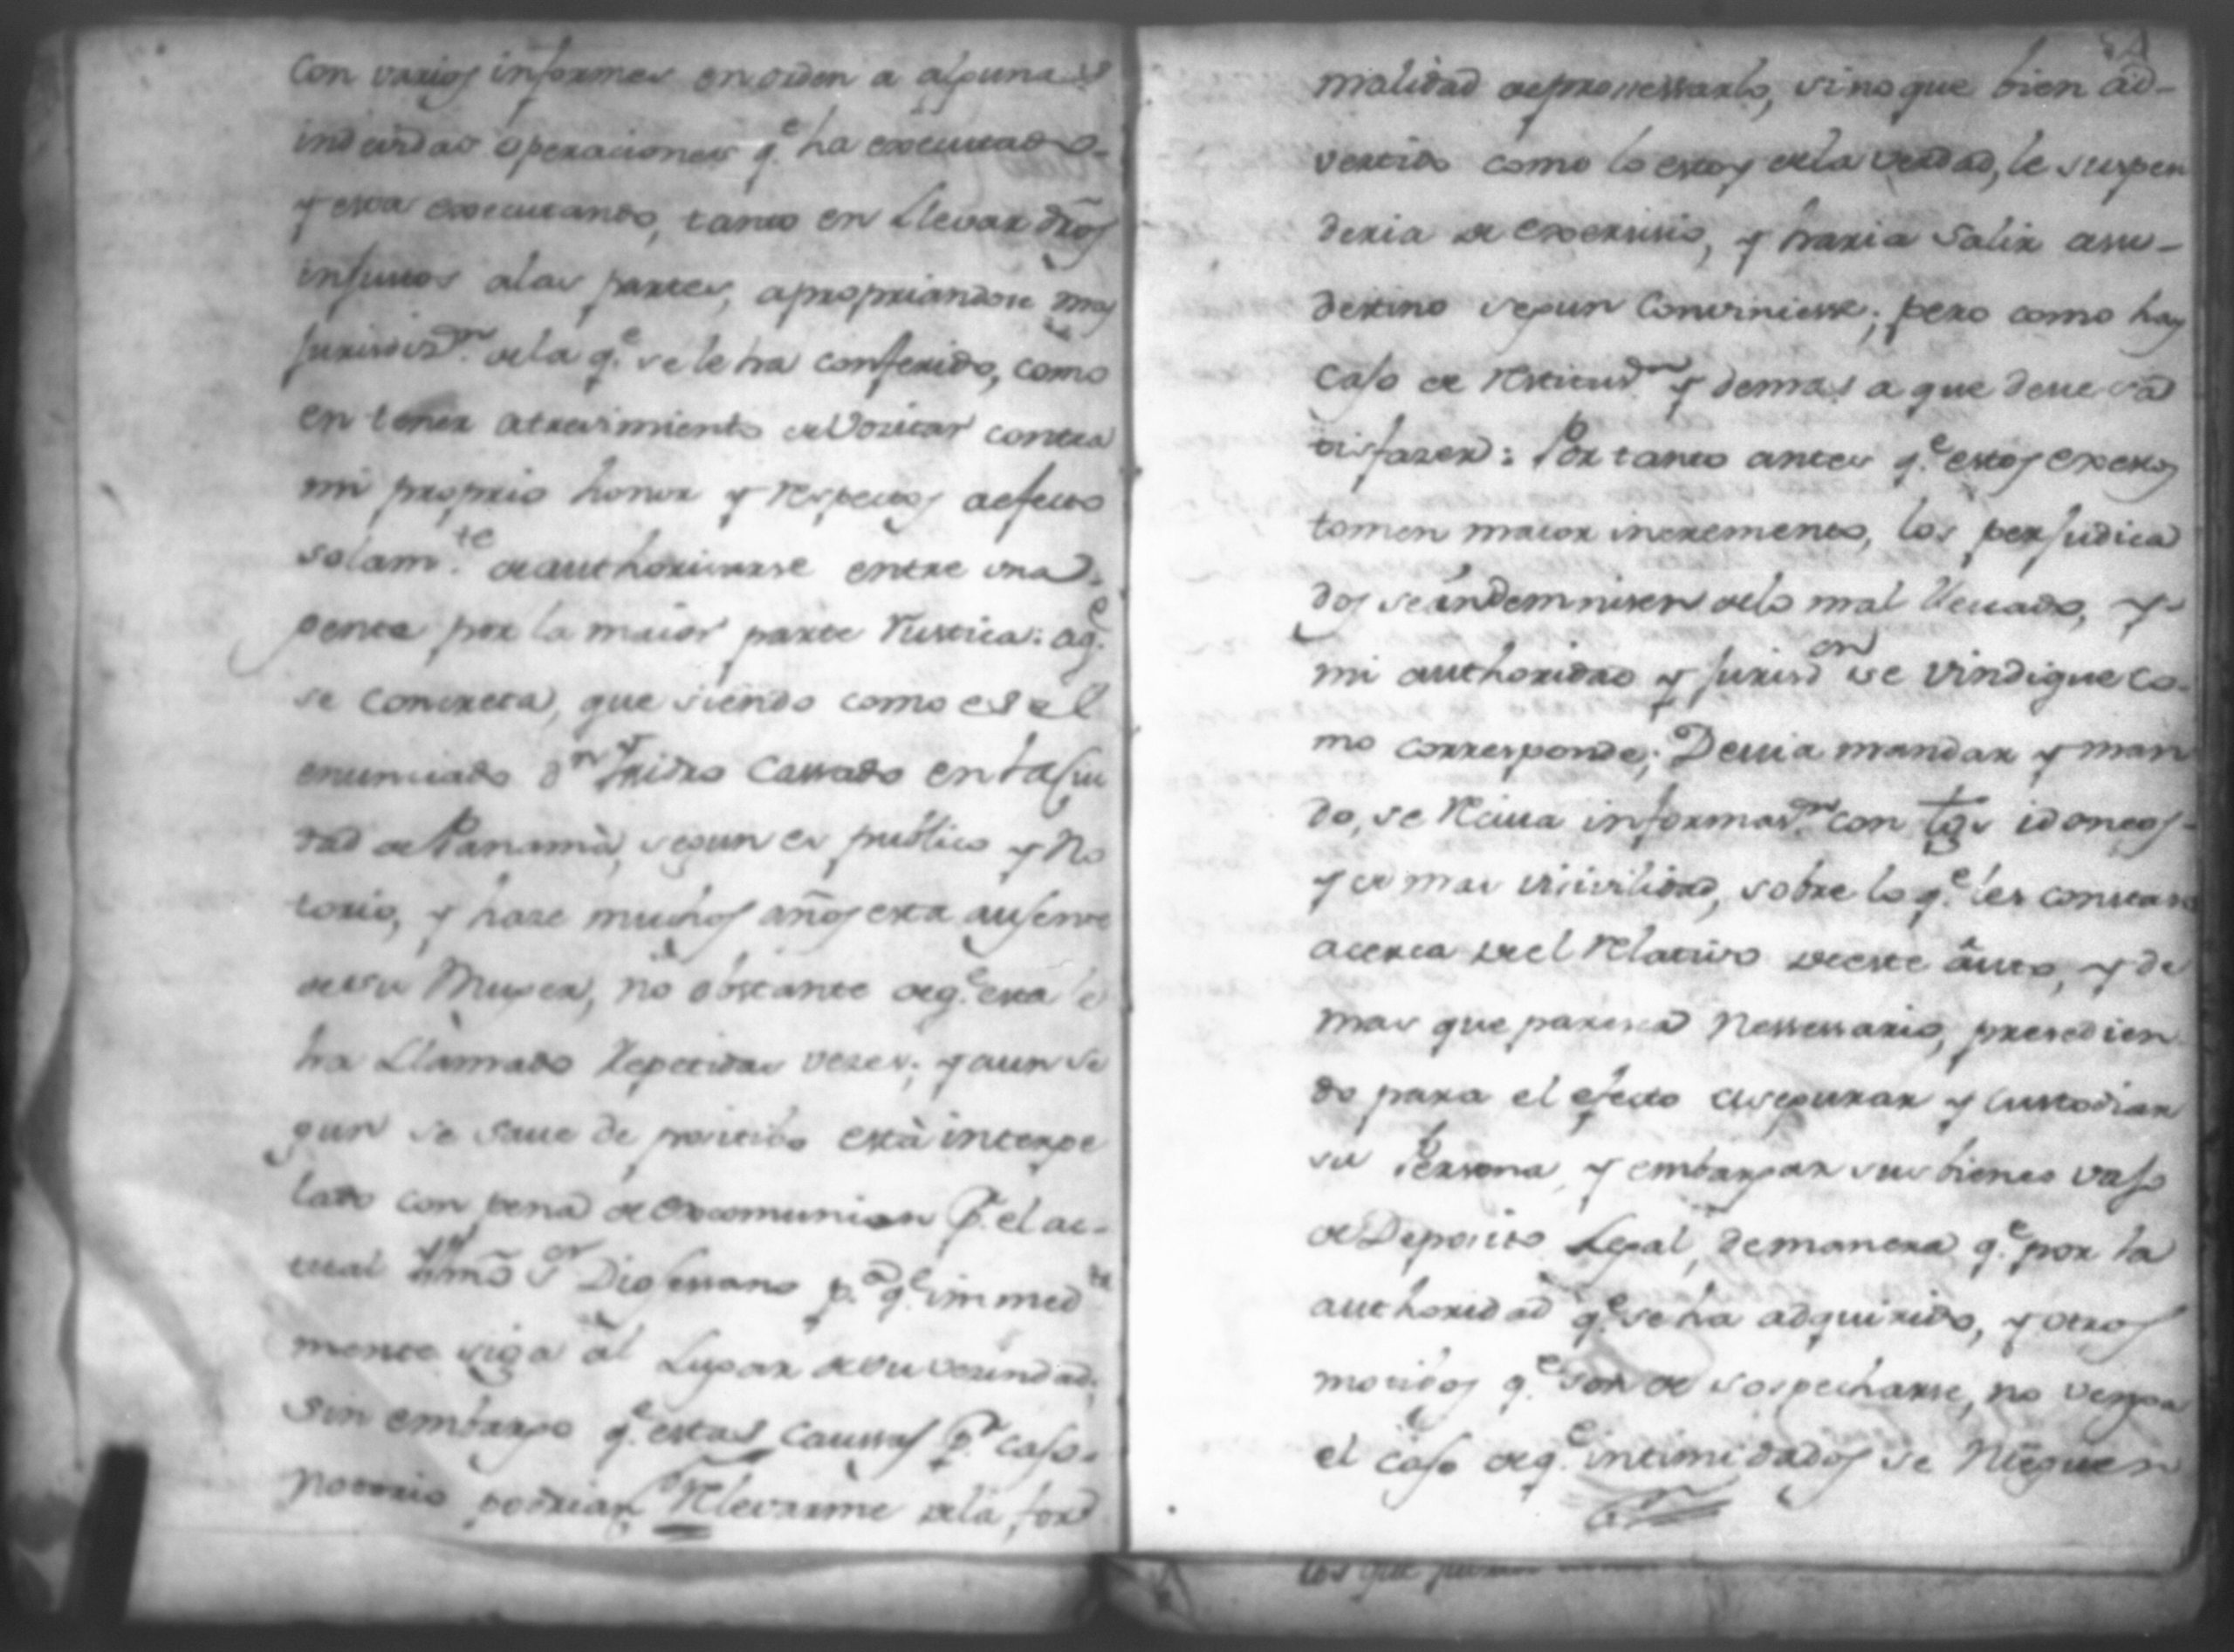 Con varios informes en orden a algunas
indevidas operaciones q.e ha executado
y esta executando, tanto en Llevar dros
injustos a las partes, apropriandose mas
Jurisdiz.on de la q.e se le ha conferido, como
en tener atrevimiento de vozitar contra
mi proprio honor y respectos a efecto
solam.te de authorizarse entre una
gente por la maior parte rustica: a q.e
se concreta, que siendo como es el
enunciado d.n Isidro Cassado en la Ciu
dad de Panamà, segun es publico y no
torio, y haze muchos años esta ausente
de su Muger, no obstante de q.e esta le
ha Llamado repetidas vezes; y aun se
gun se save de positibo està interpe
lado con pena de excomunion p.r el ac-
tual Illmo S.or Diosessano p.a q.e immed.ta
mente siga al Lugar de su vezindad,
sin embargo q.e estas caussas p.r caso
notorio podrian relevarme de la for
52
malidad de prosessarlo, sino que bien ad-
vertido como lo estoy de la verdad, le suspen
deria de exersisio, y haria salir a su
destino segun conviniesse; pero como hay
caso de restitud.on y demas a que deve sa
tisfazer: Por tanto antes q.e estos exesos
tomen maior incremento, los perjudica
dos se indemnisen de lo mal llevado, y
mi authoridad y jurisd.on se vindique co-
mo corresponde; Devia mandar y man
do, se reciva informaz.on con tgs idoneos
y de mas visivilidad, sobre lo q.e les constare
acerca del relativo de este auto, y de
mas que paresca nessessario, presedien
do para el efecto asegurar y custodiar
su Persona, y embargar sus bienes vajo
de Deposito Legal, demanera q.e por la
authoridad q.e se ha adquirido, y otros
motibos q.e son de sospecharse, no venga
el caso de q.e intimidados se nieguen
los que